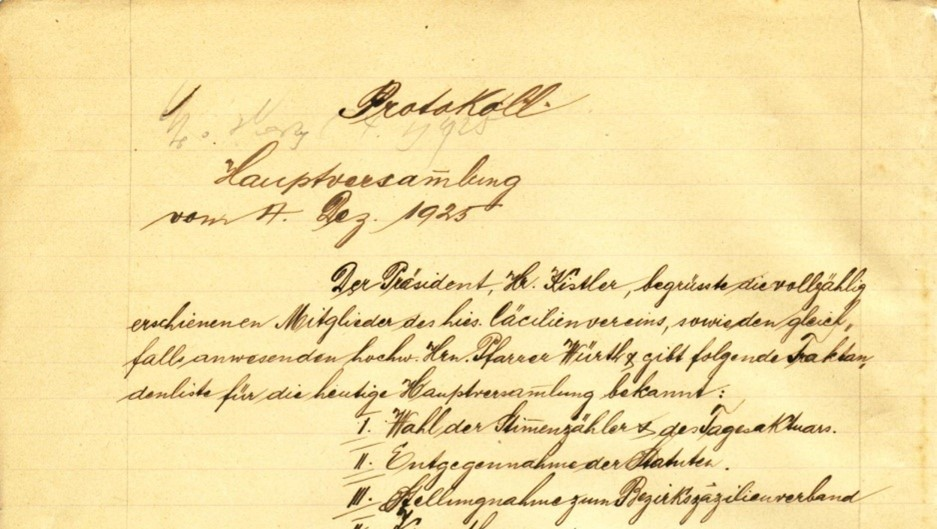 Protokoll.
1925
Hauptversam̄lung
vom 4. Dez. 1925
Der Präsident, Hr. Kistler, begrüsste die vollzählig
erschienenen Mitglieder des hies. Cäcilienvereins, sowie den gleich„
falls anwesenden hochw. Hrn. Pfarrer Würth & gibt folgende Traktan„
denliste für die heutige Hauptversam̄lung bekannt:
I. Wahl der Stim̄enzähler & des Tagesaktuars.
II. Entgegennahme der Statuten.
III. Stellungnahme zum Bezirkszäzilienverband